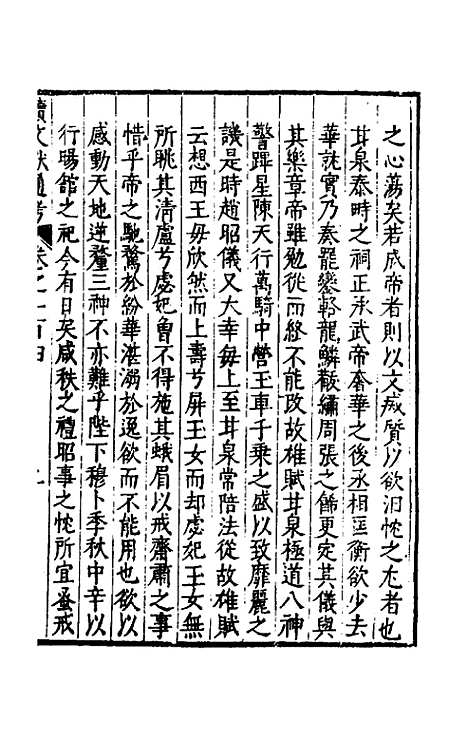 之心蕩矣若成帝者則以文威質以欲汨忱之尤者也
甘泉泰畤之祠正承武帝奢華之後丞相匡衡欲少去
華就實乃奏罷鸞輅龍鱗黻繡周張之飾更定其儀與
其樂章帝雖勉從而終不能改故雄賦甘泉極道八神
警蹕星陳天行萬騎中營王車千乘之盛以致靡麗之
譏是時趙昭儀又大幸每上至甘泉常陪法從故雄賦
云想西王母欣然而上壽兮屏王女而却虙妃王女無
所眺其清盧兮虙妃曾不得施其蛾眉以戒齋肅之事
惜乎帝之馳騖於紛華湛溺於逸欲而不能用也欲以
感動天地逆釐三神不亦難乎陛下穆卜季秋中辛以
行暘館之祀今有日矣咸秩之禮昭事之忱所宜蚤戒
續文獻通考 卷之一百四 九